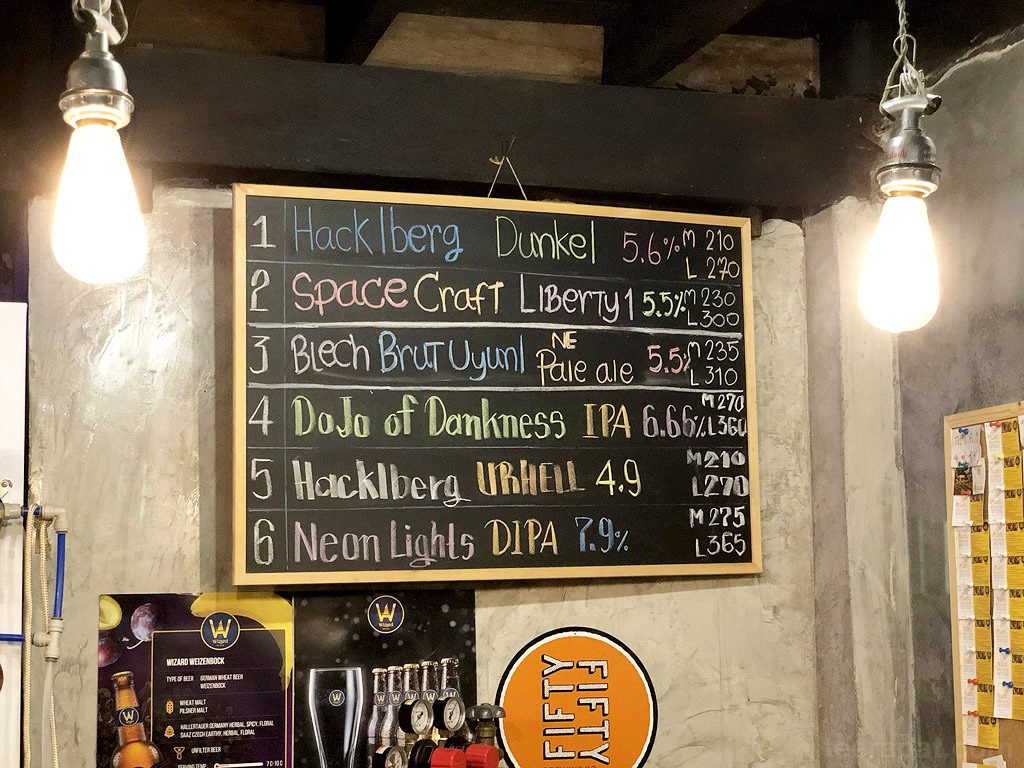 1 Hacklberg Dunkel 5.6% M 210
L 270
2 Space Craft Liberty 1 5.5% M 230
L 300
3 Blech Brut Uyuni NE Pale ale 5.5% M 235
L 310
4 DoJo of Dankness IPA 6.66% M 270
L 360
5 Hacklberg URHELL 4.9 M 210
L 270
6 Neon Lights DIPA 7.9% M 275
L 365
Wizard
WIZARD WEIZENBOCK
TYPE OF BEER GERMAN WHEAT BEER
WEIZENBOCK
WHEAT MALT
PILSNER MALT
HALLERTAUER GERMANY HERBAL, SPICY, FLORAL
SAAZ CZECH EARTHY, HERBAL, FLORAL
UNFILTER BEER
SERVING TEMP: 7°C-10°C
Wizard
FIFTY
FIFTY